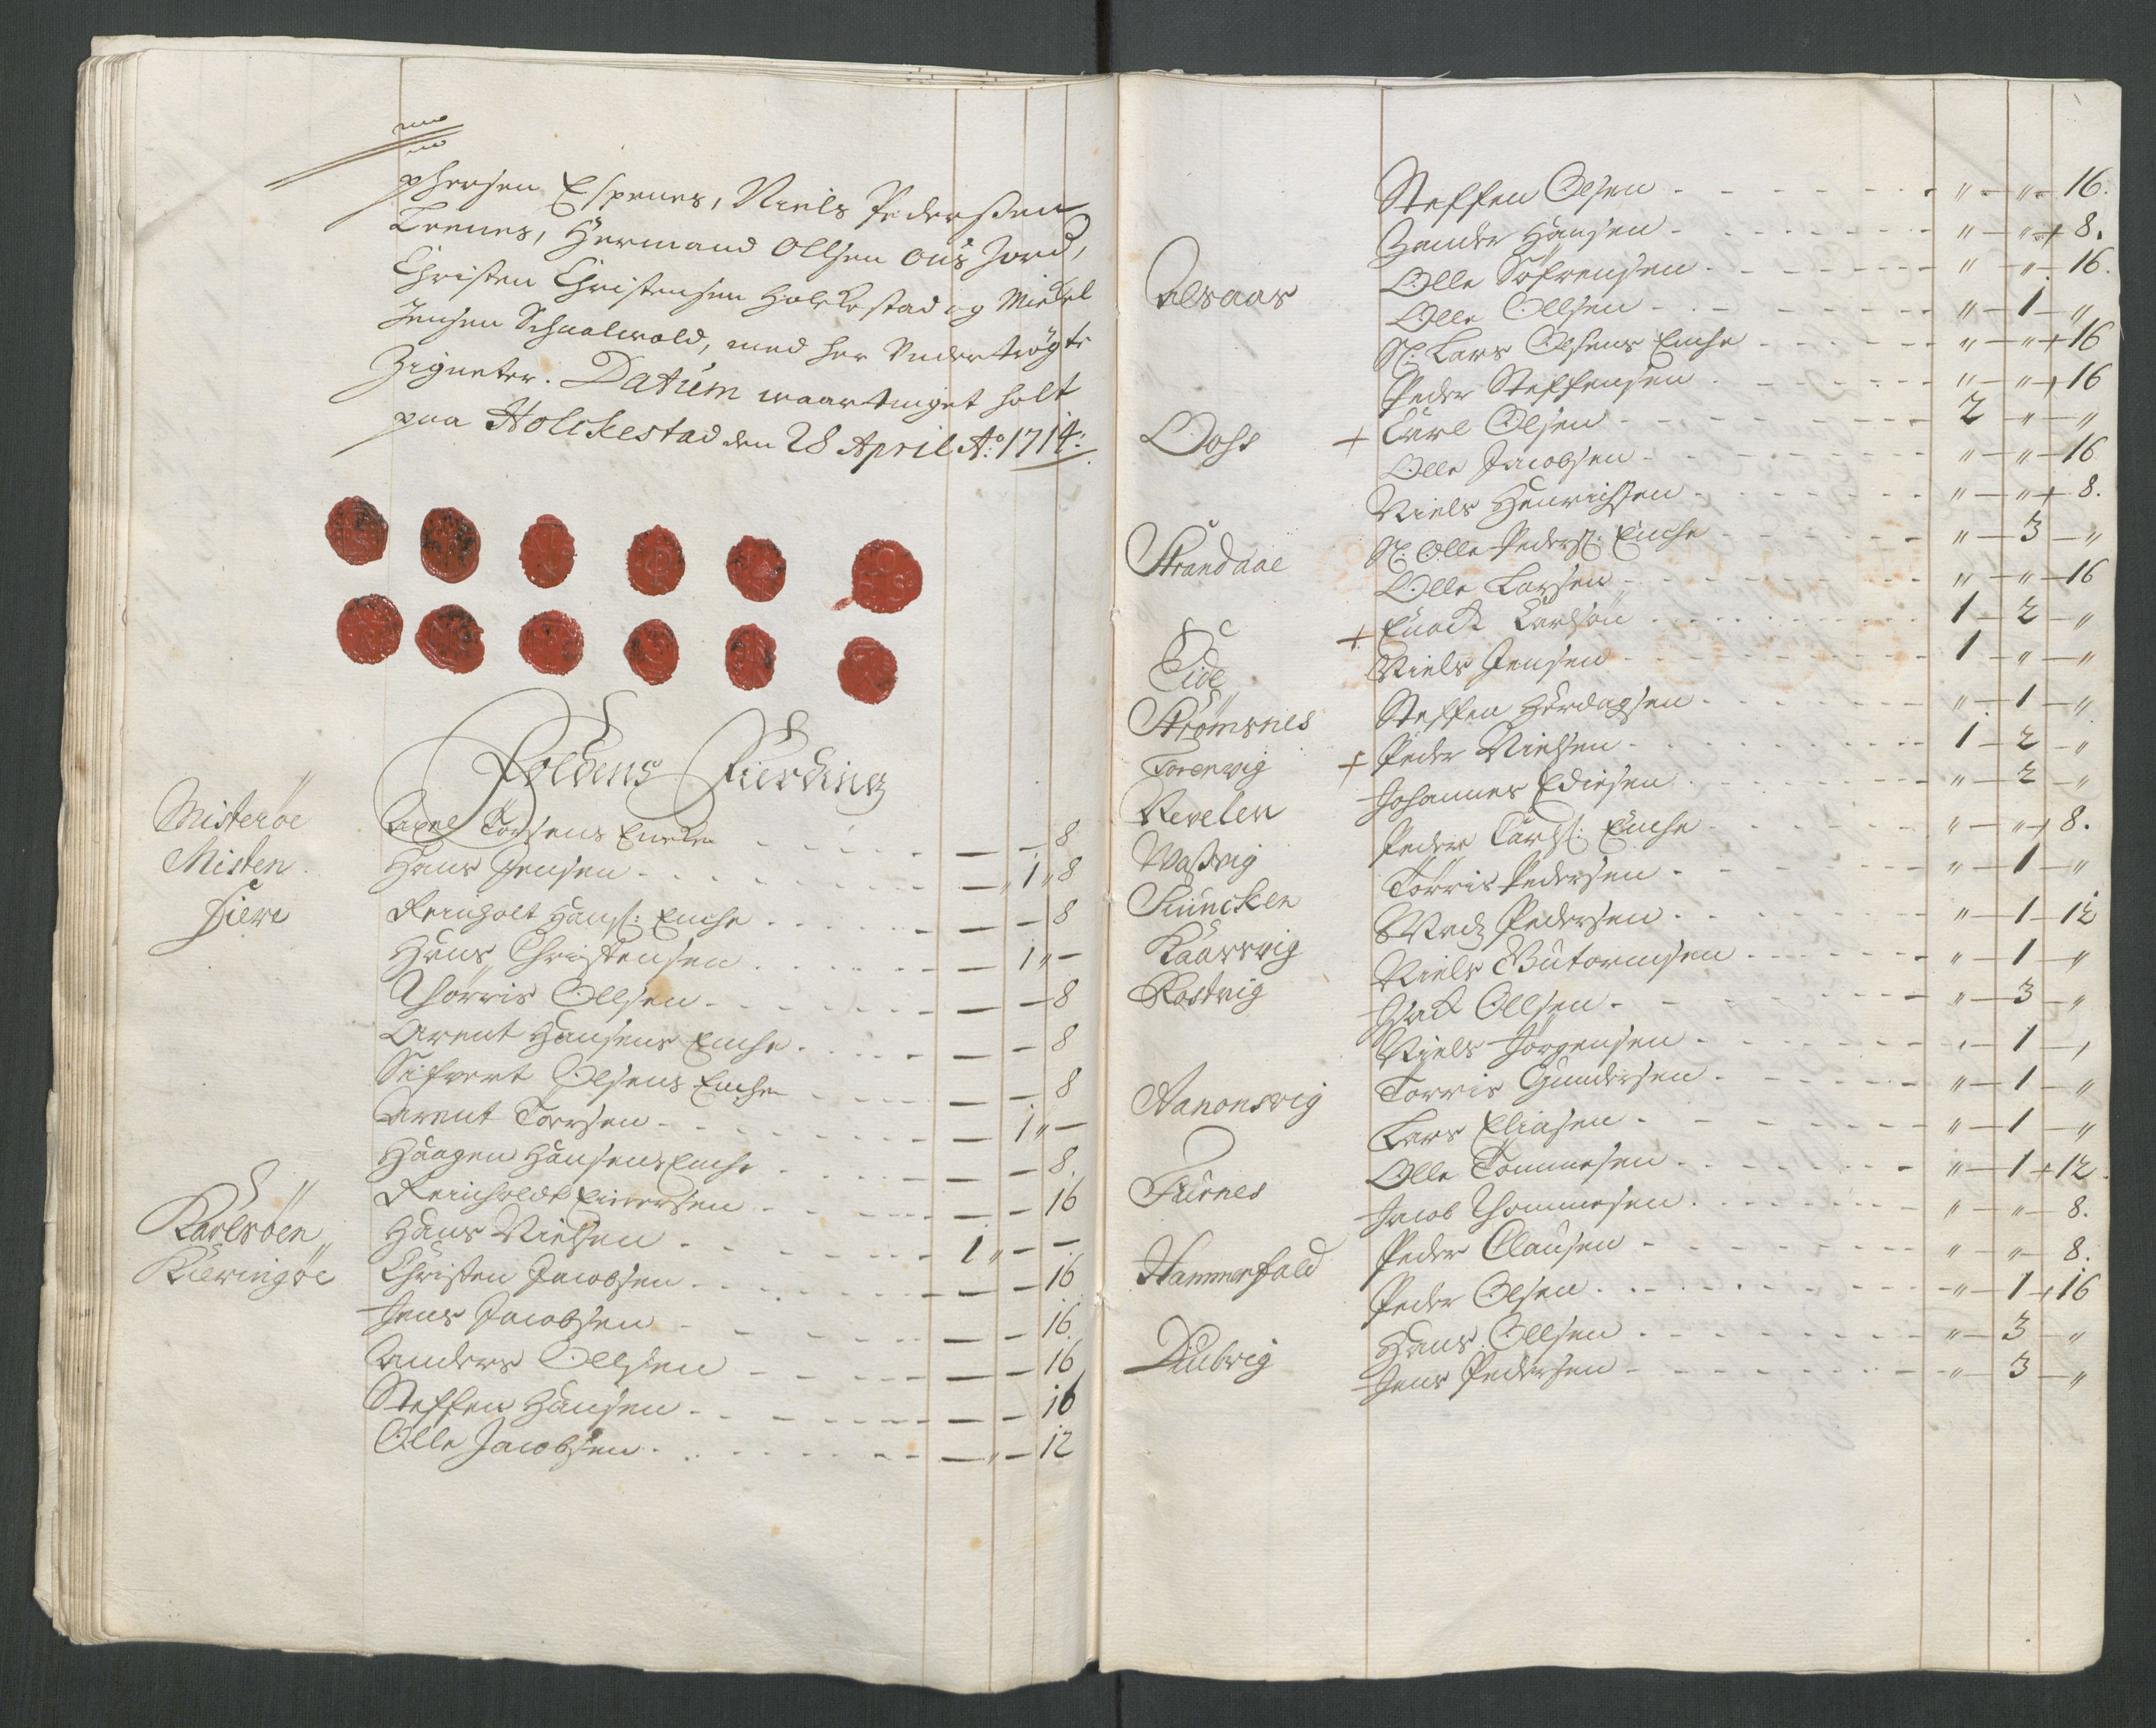 phersen Espenes, Niels Pedersen
Leenes, Hermand Ollsen Aus Jord,
Christen Christensen Holckestad og Mickel
Jensen Schaalwold, med her Undertrögte
Zigneter. Datum waartinget holt
paa Holckestad den 28 April A:o 1714:
Foldens Fierding
Misteröe Axel Torsens Encke - 8
Misten Hans Jensen - 1 " 8
Fiere Reinholt Hanss: Enche - 8
Hans Christensen - 1 " -
Thörris Ollsen - 8
Arent Hansens Enche - 8
Sifvert Olsens Enche - 8
Arent Torrsen - 1 " -
Haagen Hansens Enche - 8
Reinholdt Einersen - 16
Karlsöen Hans Nielsen 1 " - -
Kieringöe Christen Jacobsen - 16
Jens Jacobsen - 16
Anders Ollsen - 16
Steffen Hansen - 16
Olle Jacobsen - " - 12
Steffen Olsen " - " - 16.
Zander Hansen " - " - 8.
Alsaas Olle Söfrensen " - " - 16.
Olle Ollsen " - 1 - "
Sl: Lars Olsens Enche " - " - 16
Peder Steffensen " - " - 16
+ Carl Olsen 2 - " - "
Olle Jacobsen " - " - 16
Niels Henrichsen " - " - 8.
Strandaae Sl: Olle Peders: Enche " - 3 - "
Olle Larsen " - " - 16
+ Enock Carlsön 1 - 2 - "
Eide Niels Jensen 1 - " - "
Strömsnes Steffen Hördagsen " - 1 - "
Torenvig + Peder Nielsen 1 - 2 - "
Revelen Johannes Ediesen " - 2 - "
Wassvig Peder Carls: Enche " - " - 8.
Törris Pedersen " - 1 - "
Skuncken Mads Pedersen " - 1 - 12
Kaarvig Niels Gutormsen " - 1 - "
Rostvig Isack Ollsen " - 3 - "
Niels Jörgensen " - 1 - "
Aanonsvig Torris Gundersen " - 1 - "
Lars Eliasen " - 1 - "
Olle Tommesen " - 1 - 12.
Furnes Jacob Thommesen " - " - 8.
Peder Clausen " - " - 8.
Hammerfald Peder Olsen " - 1 - 16
Hans Ollsen " - 3 - "
Diubvig Jens Pedersen " - 3 - "